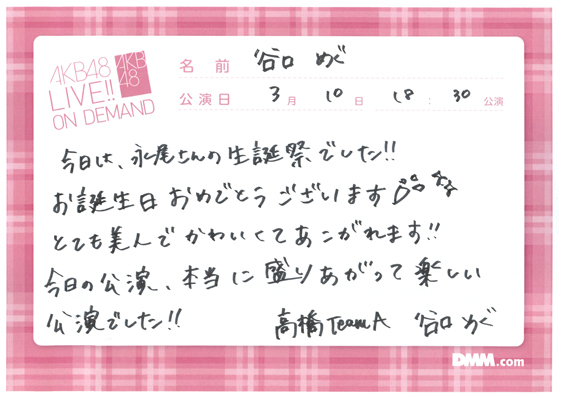 AKB48
LIVE!!
ON DEMAND
AKB
48
名前 谷口 めぐ
公演日 3月 10日 18:30公演
今日は、永尾さんの生誕祭でした!!
お誕生日おめでとうございます
とても美人でかわいくてあこがれます!!
今日の公演、本当に盛りあがって楽しい
公演でした!! 高橋TeamA 谷口めぐ
DMM.com